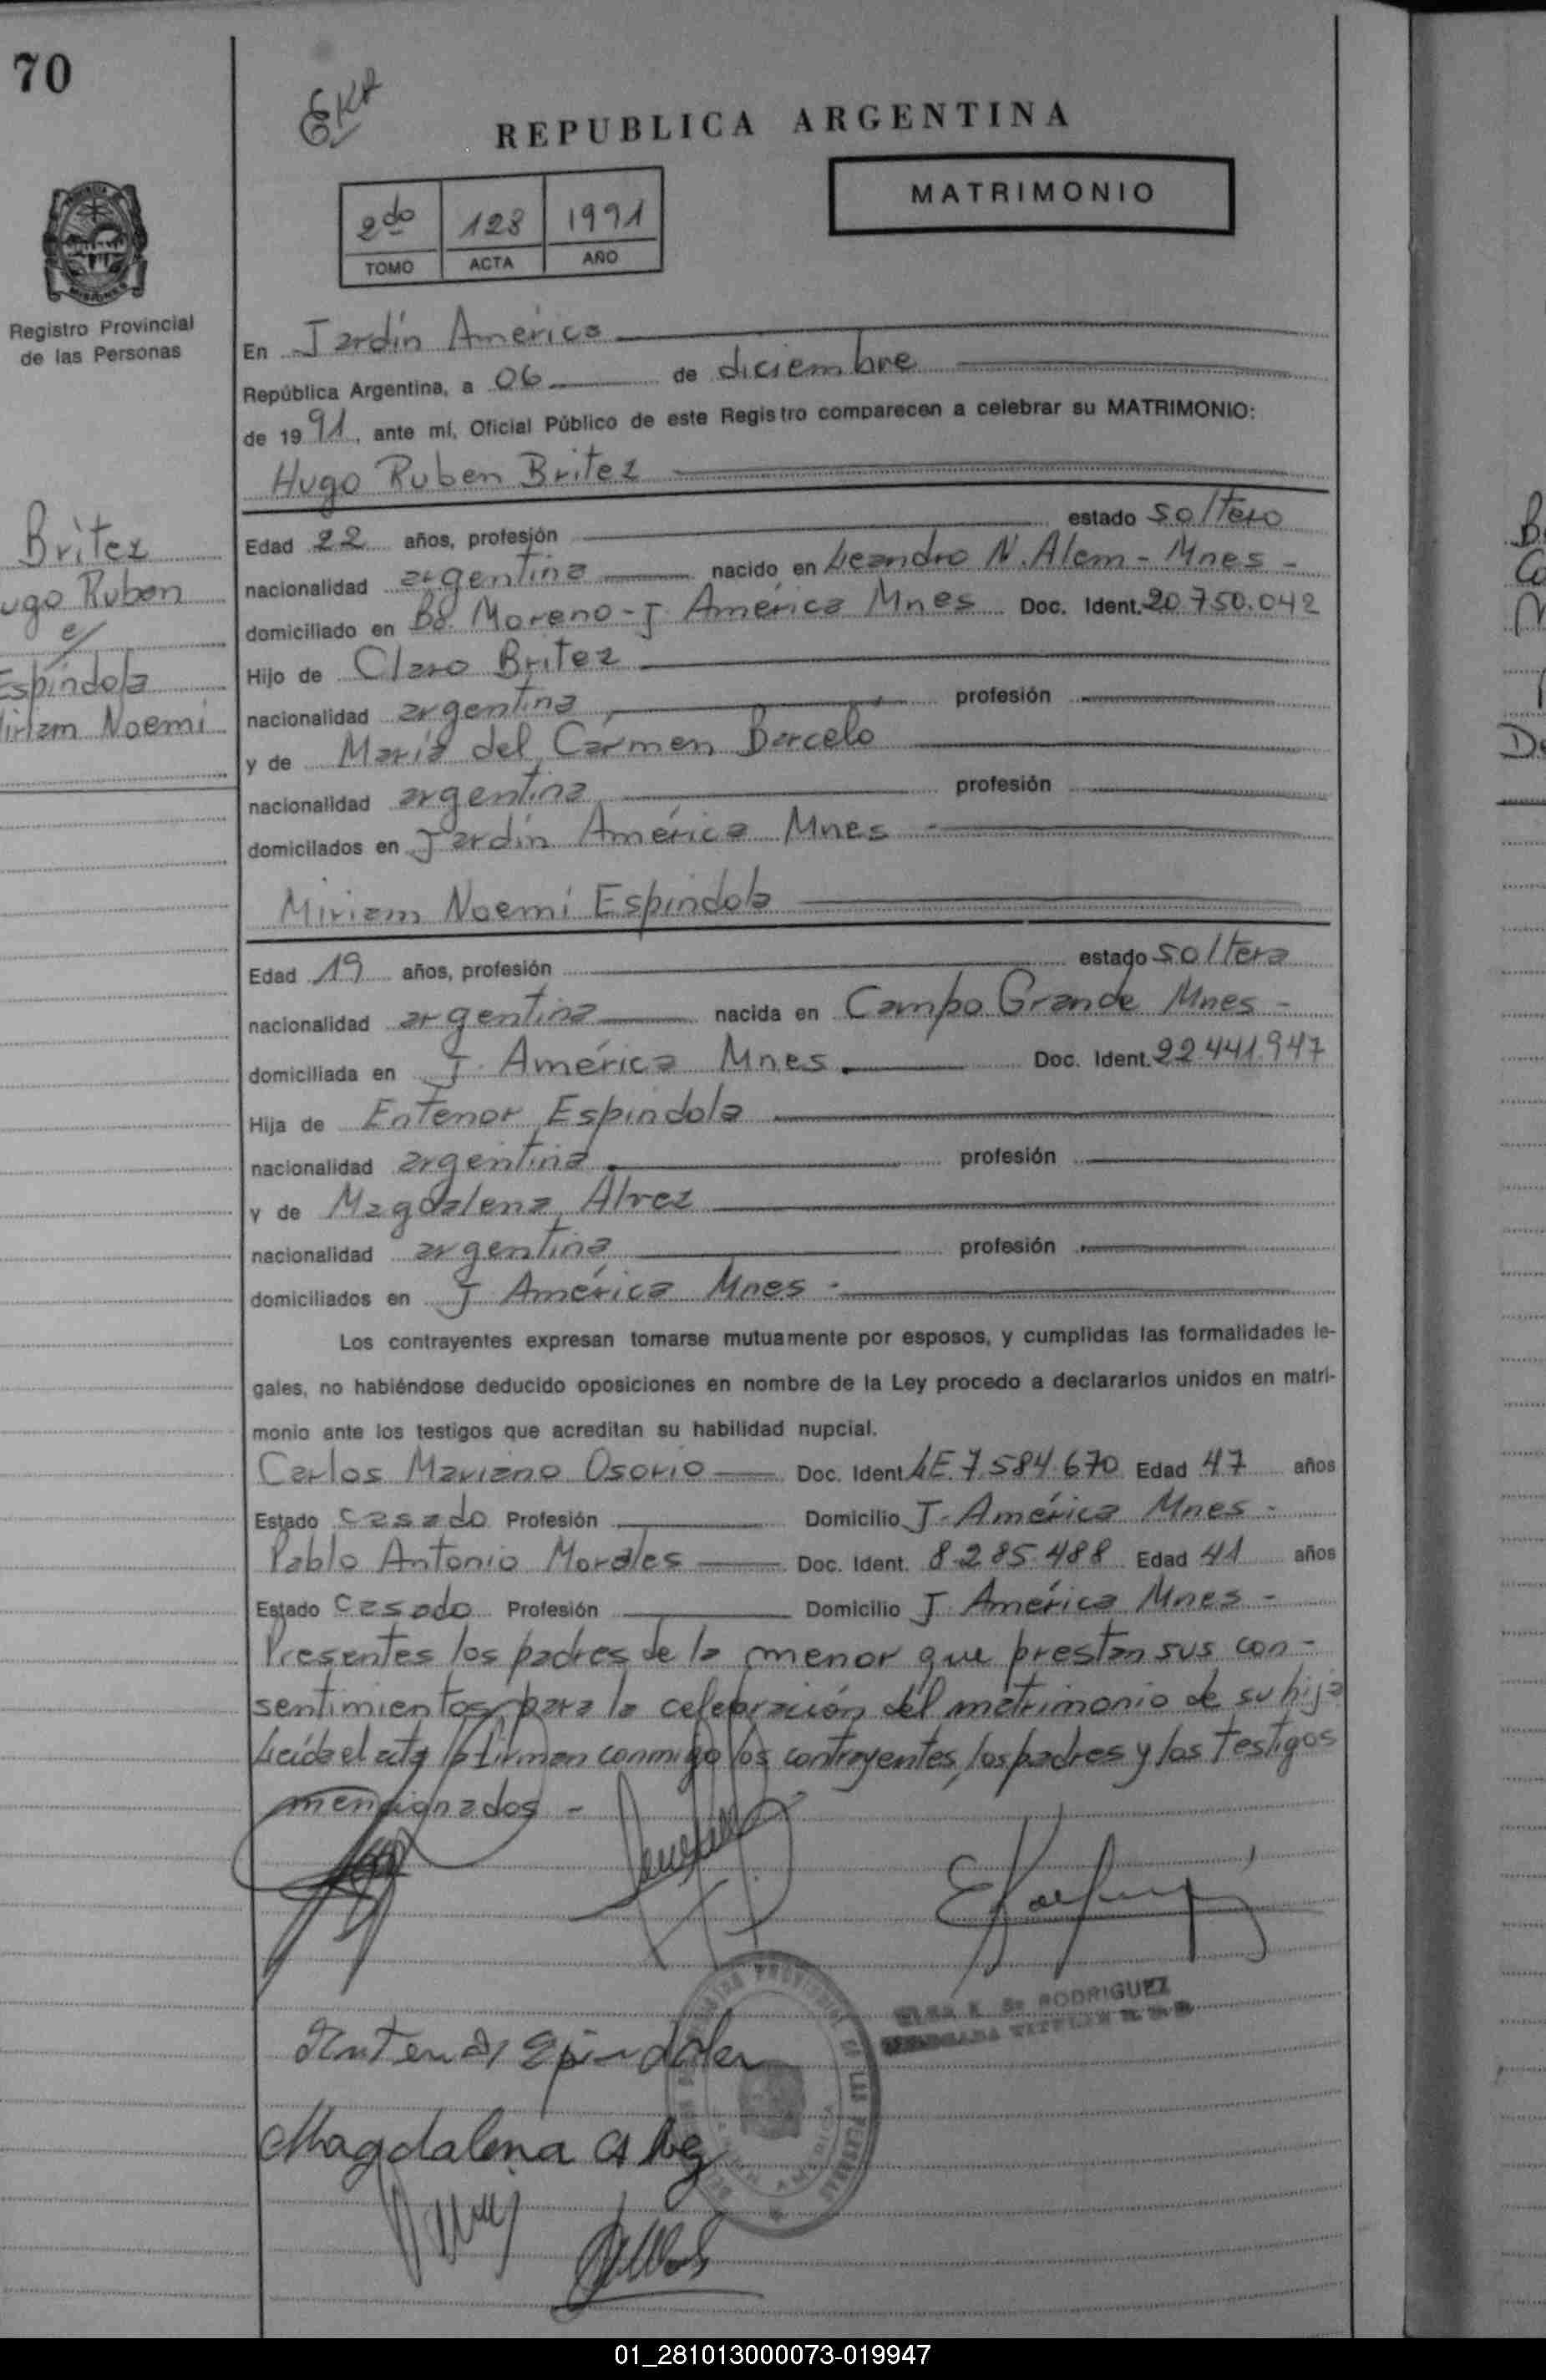 70
REPUBLICA ARGENTINA
MATRIMONIO
2do 128 1991
TOMO ACTA AÑO
Registro Provincial
de las Personas
En Jardín América
República Argentina, a 06 de diciembre
de 1991, ante mí, Oficial Público de este Registro comparecen a celebrar su MATRIMONIO:
Hugo Ruben Britez
Britez
ugo Ruben
e/
Espíndola
iriam Noemí
Edad 22 años, profesión estado soltero
nacionalidad argentina nacido en Leandro N. Alem - Mnes -
domiciliado en Bo. Moreno - J. América Mnes Doc. Ident. 20.750.042
Hijo de Claro Britez
nacionalidad argentina profesión
y de María del Cármen Barceló
nacionalidad argentina profesión
domicilados en Jardín América Mnes -
Miriam Noemí Espíndola
Edad 19 años, profesión estado soltera
nacionalidad argentina nacida en Campo Grande Mnes -
domiciliada en J. América Mnes. Doc. Ident. 22.441.947
Hija de Entenor Espindola
nacionalidad argentina profesión
y de Magdalena Alvez
nacionalidad argentina profesión
domiciliados en J América Mnes -
Los contrayentes expresan tomarse mutuamente por esposos, y cumplidas las formalidades le-
gales, no habiéndose deducido oposiciones en nombre de la Ley procedo a declararlos unidos en matri-
monio ante los testigos que acreditan su habilidad nupcial.
Carlos Mariano Osorio Doc. Ident LE.7.584.670 Edad 47 años
Estado casado Profesión Domicilio J. América Mnes -
Pablo Antonio Morales Doc. Ident. 8.285.488 Edad 41 años
Estado casado Profesión Domicilio J América Mnes -
Presentes los padres de la menor que prestan sus con-
sentimientos para la celebración del matrimonio de su hija
Leída el acta la firman conmigo los contrayentes, los padres y los testigos
mencionados -
RODRIGUEZ
Magdalena
01_281013000073-019947